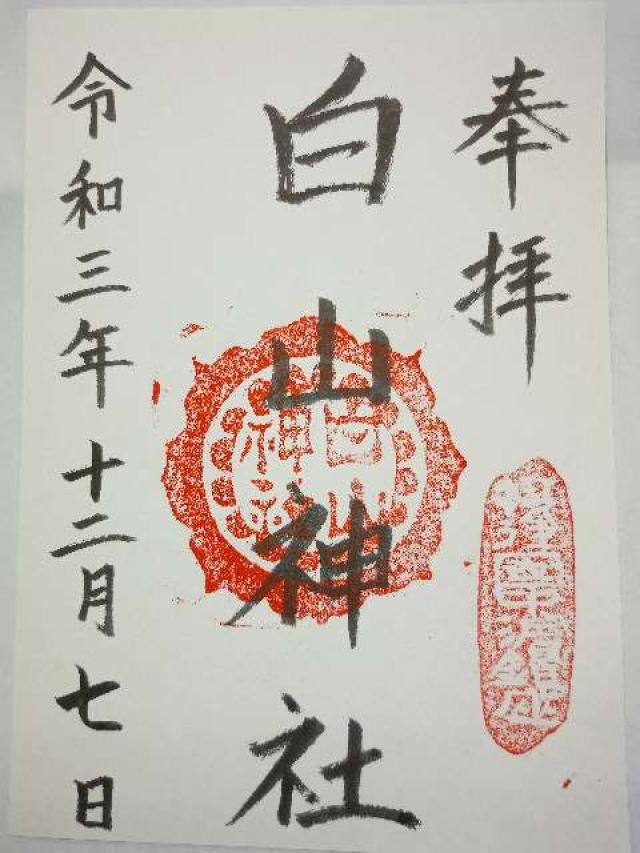 奉拝
白山神社
令和三年十二月七日
白山
神社